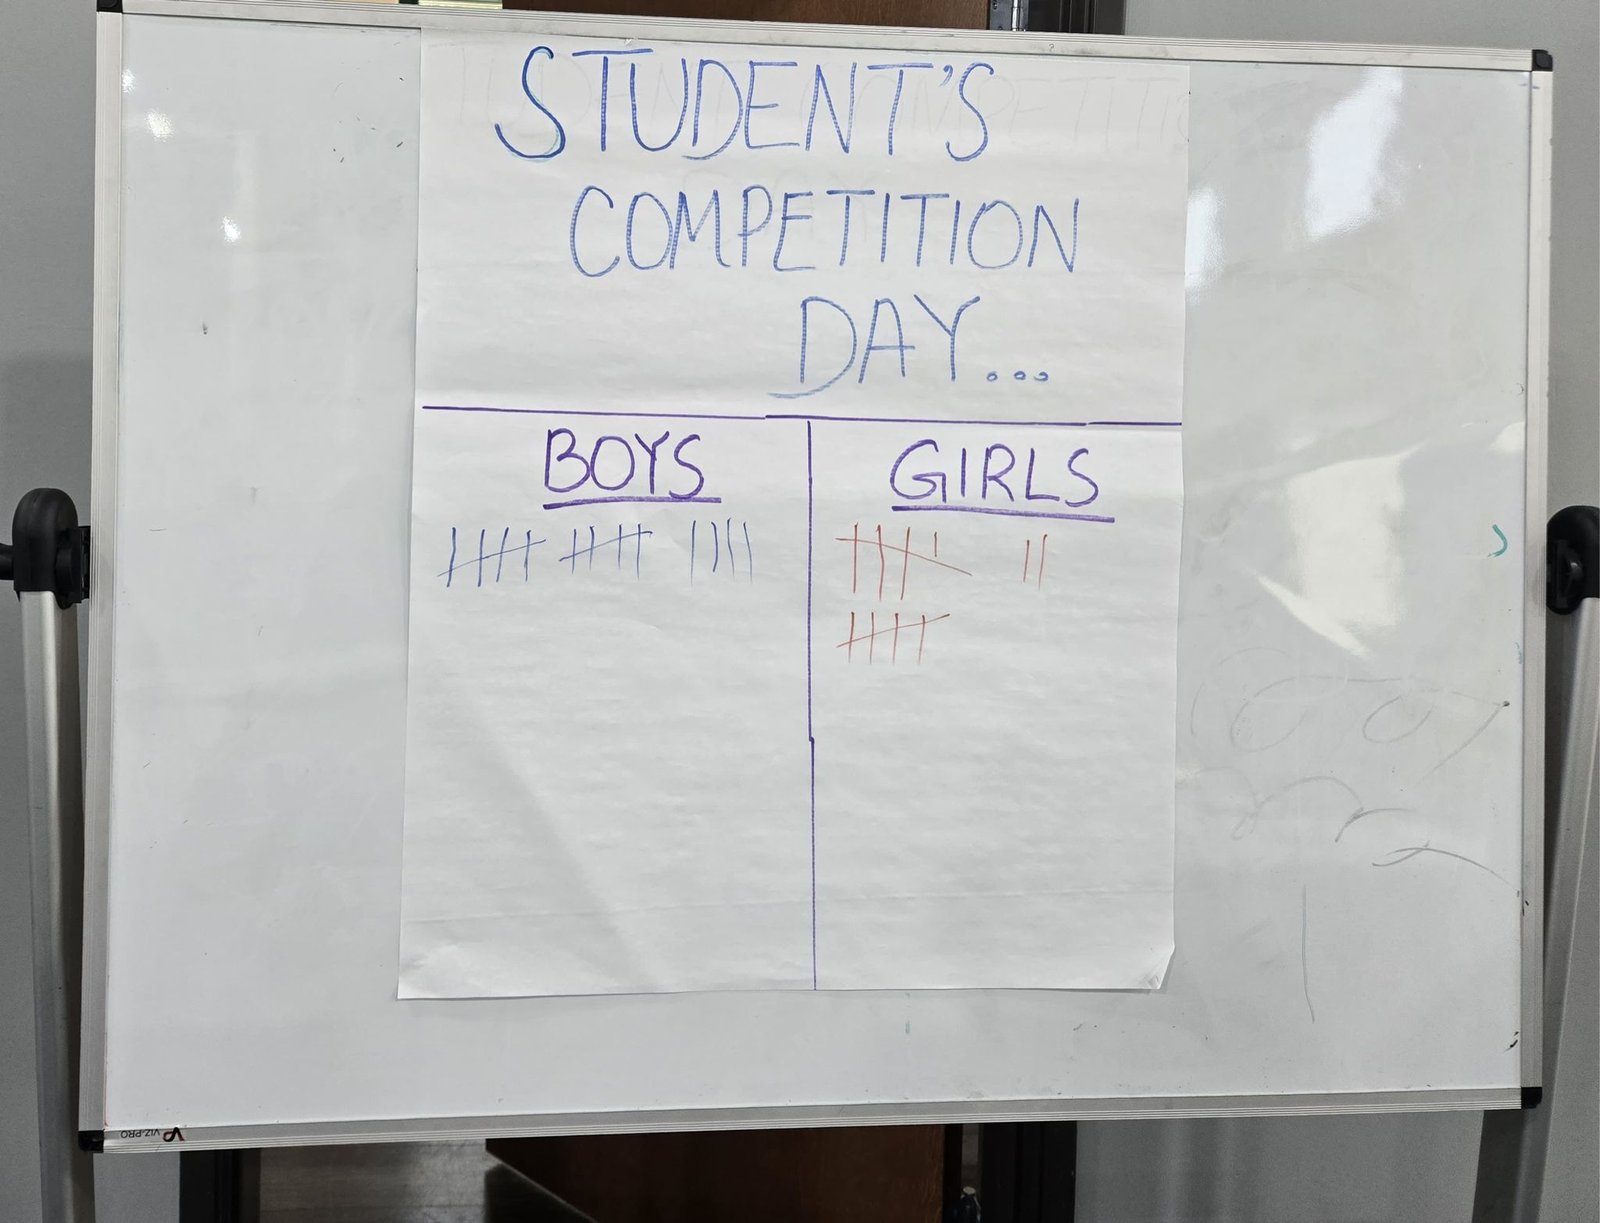 STUDENT'S
COMPETITION
DAY...
BOYS
GIRLS
VIZ-PRO